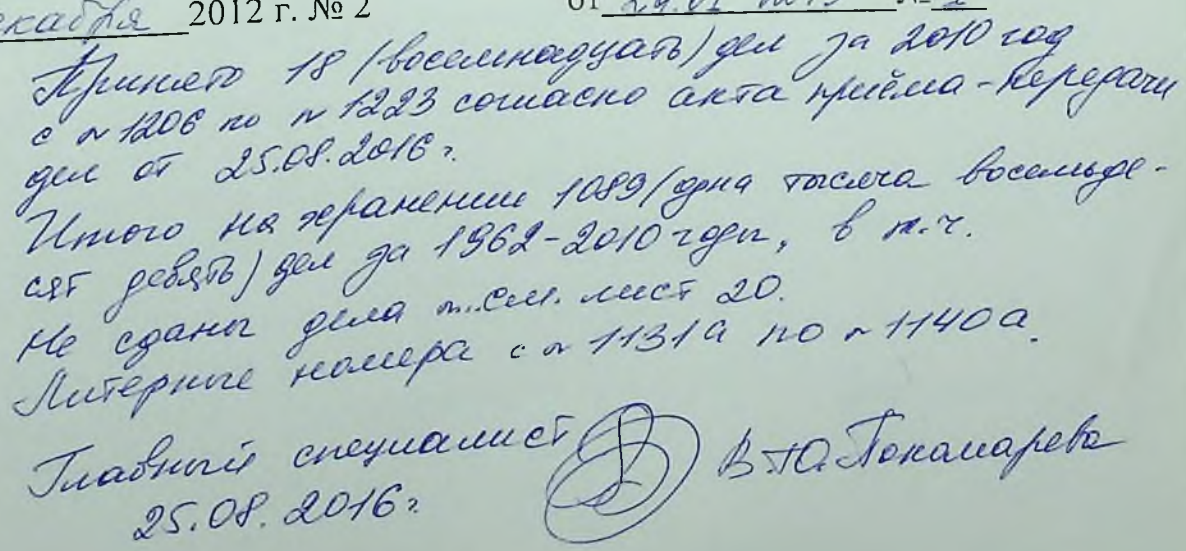 декабря 2012 г. № 2 от 29.01 2013 № 1
Принято 18 (восемнадцать) дел за 2010 год
с № 1206 по № 1223 согласно акта приёма-передачи
дел от 25.08.2016 г.
Итого на хранении 1089 (одна тысяча восемьде-
сят девять) дел за 1962-2010 годы, в т.ч.
Не сданы дела №.. см. лист 20.
Литерные номера с № 1131а по № 1140а.
Главный специалист В.Ю. Понамарева
25.08.2016 г